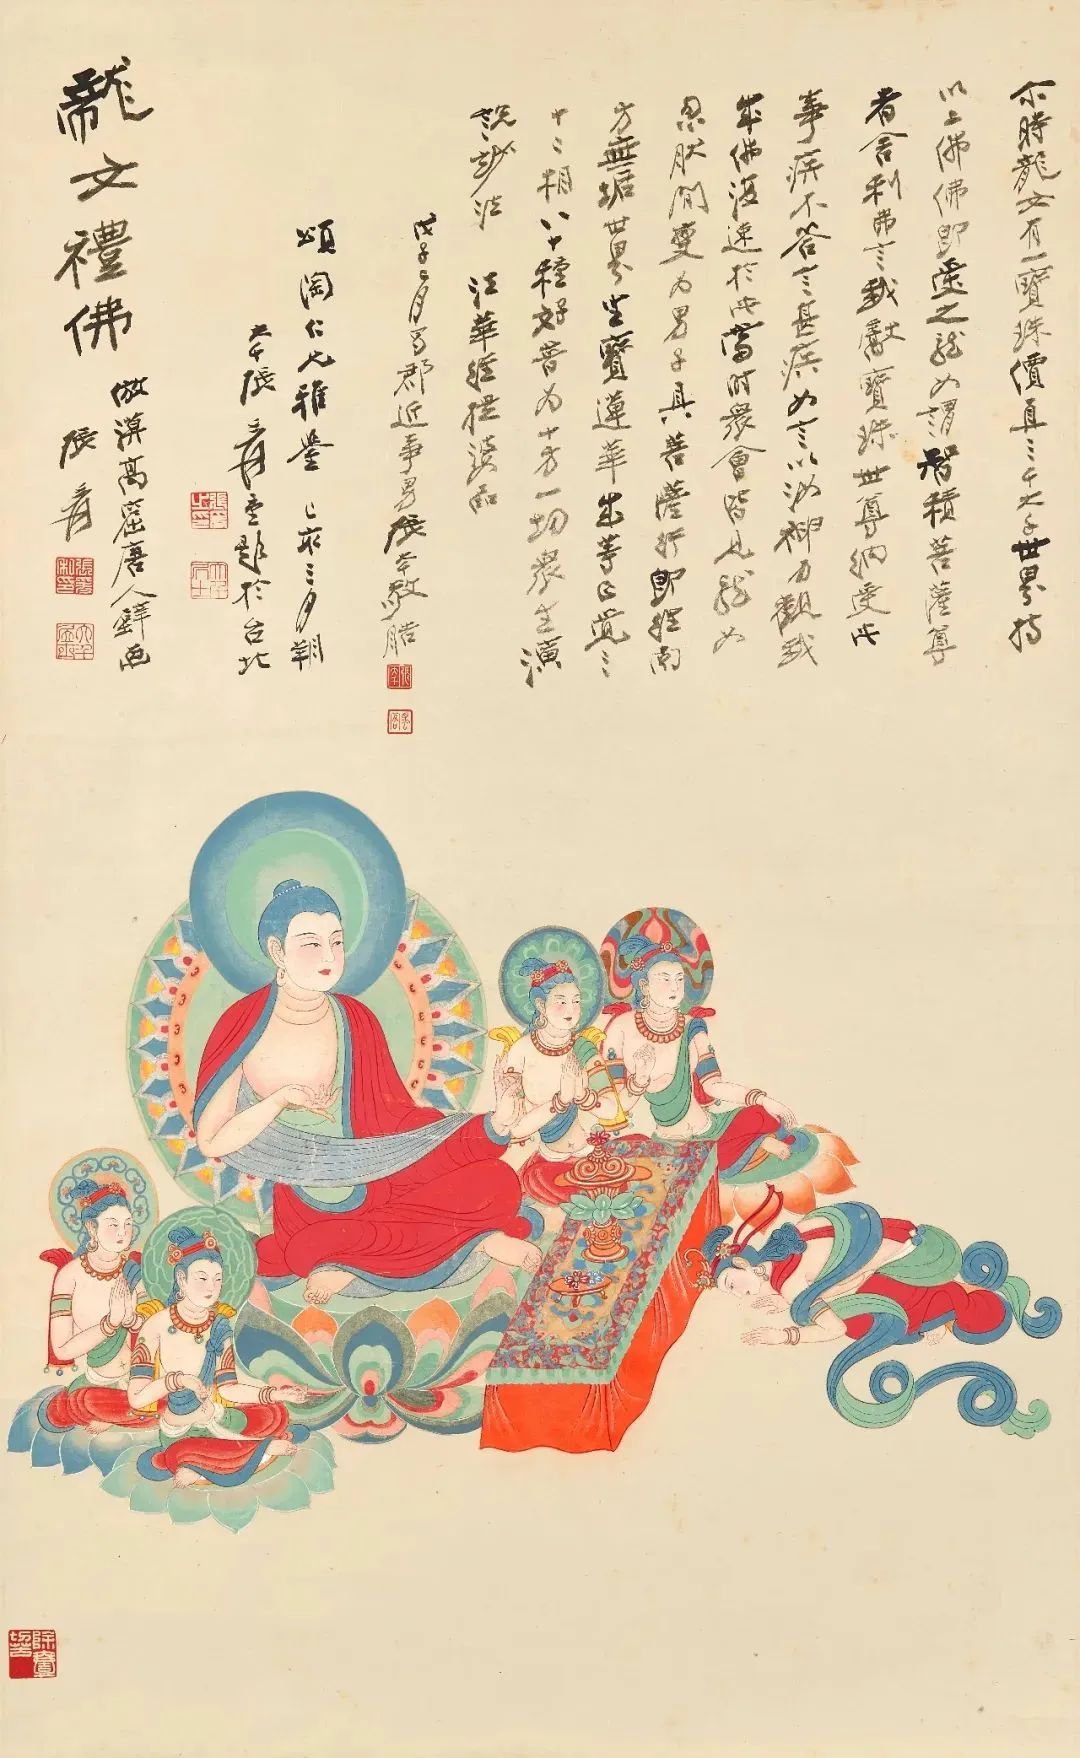 尒時龍女有一寶珠價直三千大千世界持
以上佛佛即受之龍女謂智積菩薩尊
者舍利弗言我獻寶珠世尊納受此
事疾不答言甚疾女言以汝神力觀我
成佛復速於此當時眾會皆見龍女
忽然間變為男子具菩薩行即往南
方無垢世界坐寶蓮華成等正覺三
十二相八十種好普為十方一切眾生演
說妙法 法華經提婆品
戊子二月蜀郡近事男張大千敬
頌陶仁兄雅鑒 己亥三月朔
大千張爰重題於台北
龍女禮佛
倣漠高窟唐人壁画
張爰